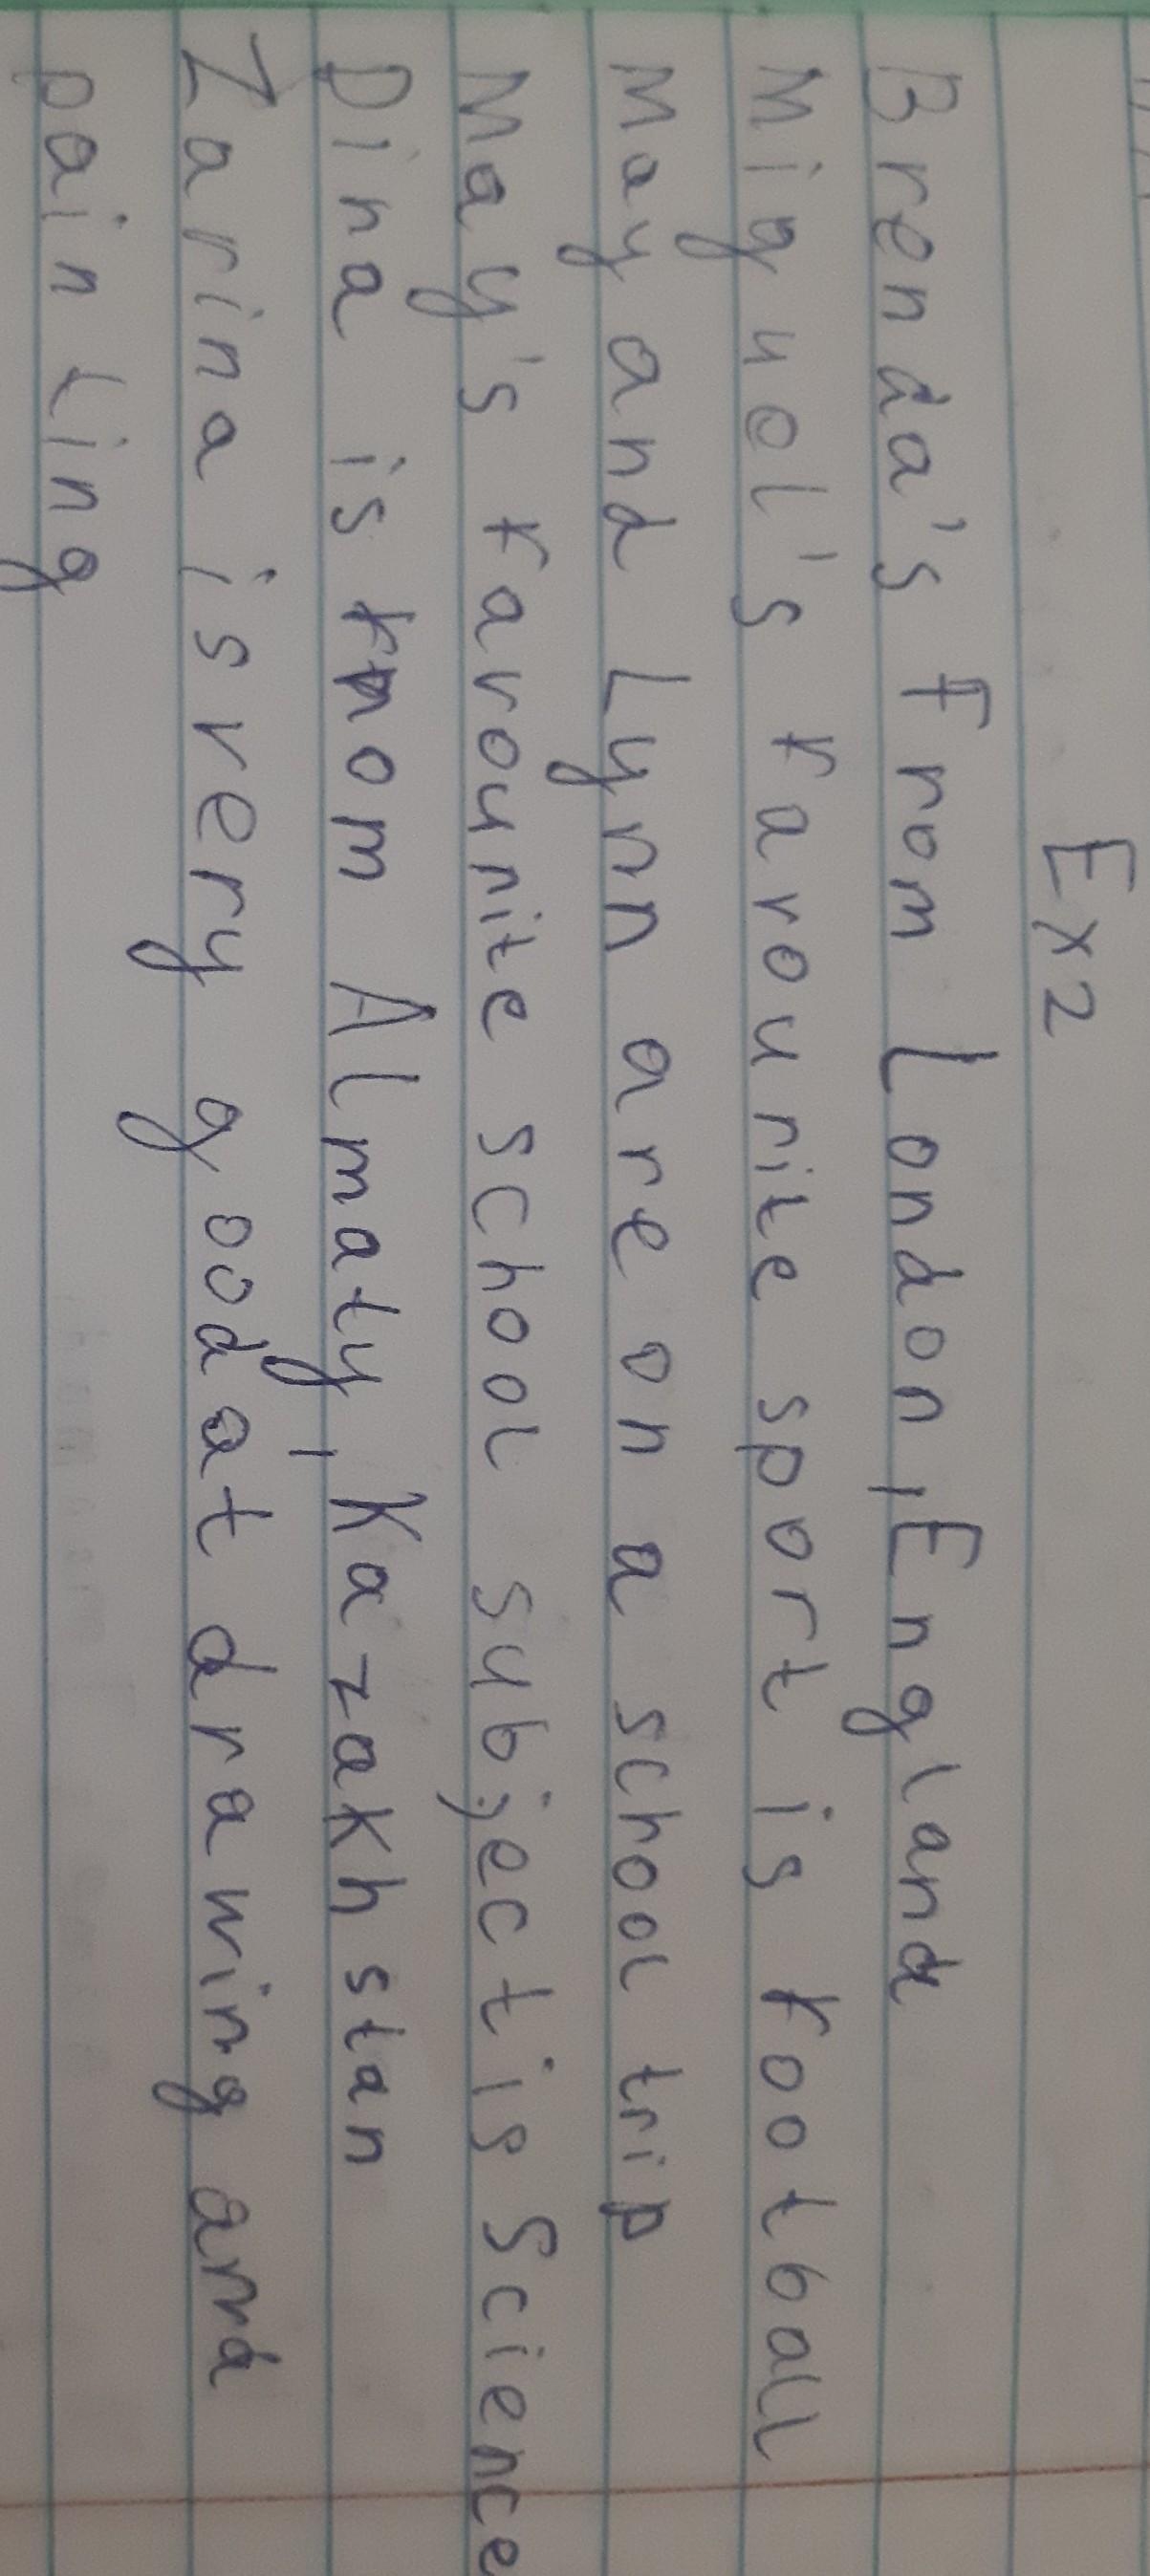 Ex 2
Brenda's From London, England
Miguel's favourite sport is football
May and Lynn are on a school trip
May's favourite school subject is Science
Dina is from Almaty, Kazakhstan
Zarina is very good at drawing and
painting